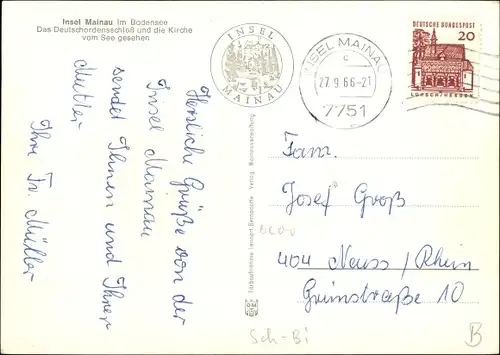 Insel Mainau im Bodensee
Das Deutschordensschloß und die Kirche
vom See gesehen
Herzliche Grüße von der
Insel Mainau
sendet Ihnen und Ihrer
Mutter
Ihre Fr. Müller
INSEL
MAINAU
INSEL MAINAU
c
27.9.66-21
7751
DEUTSCHE BUNDESPOST
20
LORSCH/HESSEN
Fam.
Josef Groß
404 Neuss/Rhein
Grünstraße 10
Sch-Bi
B